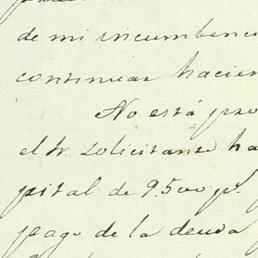 de mi incumbenci
continuar hacien
No está pro
el Sr. solicitante ha
pital de 9.500 ps.
pago de la deuda